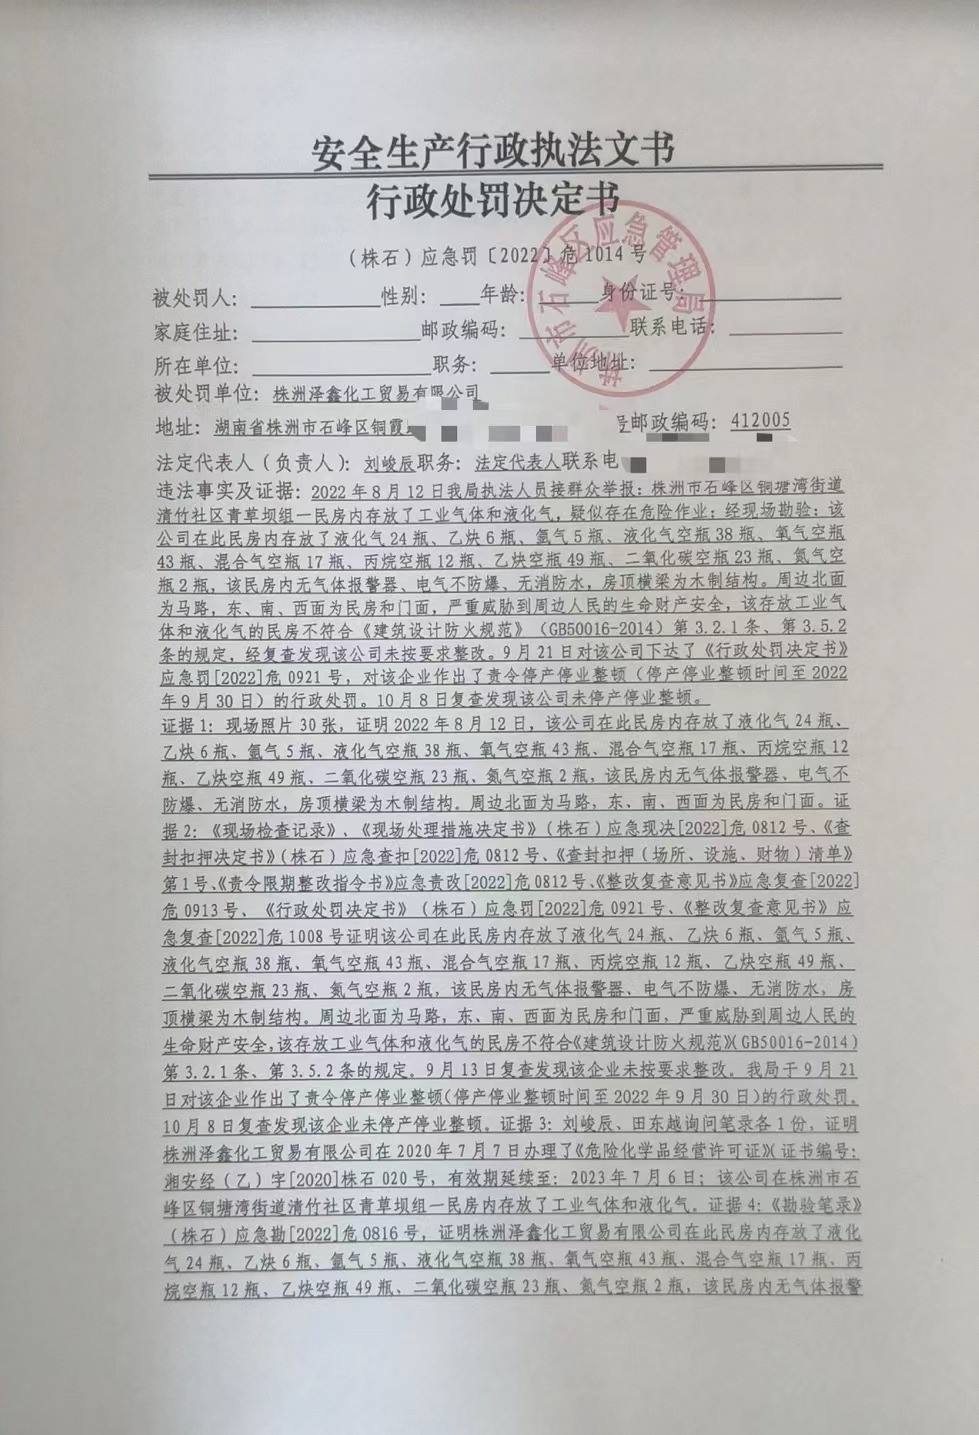 安全生产行政执法文书
行政处罚决定书
（株石）应急罚〔2022〕危1014号
被处罚人：性别：年龄：身份证号：
家庭住址：邮政编码：联系电话：
所在单位：职务：单位地址：
被处罚单位：株洲泽鑫化工贸易有限公司
地址：湖南省株洲市石峰区铜霞 号邮政编码：412005
法定代表人（负责人）：刘峻辰职务：法定代表人联系电
违法事实及证据：2022年8月12日我局执法人员接群众举报：株洲市石峰区铜塘湾街道
清竹社区青草坝组一民房内存放了工业气体和液化气，疑似存在危险作业；经现场勘验：该
公司在此民房内存放了液化气24瓶、乙炔6瓶、氩气5瓶、液化气空瓶38瓶、氧气空瓶
43瓶、混合气空瓶17瓶、丙烷空瓶12瓶、乙炔空瓶49瓶、二氧化碳空瓶23瓶、氮气空
瓶2瓶，该民房内无气体报警器、电气不防爆、无消防水，房顶横梁为木制结构。周边北面
为马路，东、南、西面为民房和门面，严重威胁到周边人民的生命财产安全，该存放工业气
体和液化气的民房不符合《建筑设计防火规范》（GB50016-2014）第3.2.1条、第3.5.2
条的规定，经复查发现该公司未按要求整改。9月21日对该公司下达了《行政处罚决定书》
应急罚[2022]危0921号，对该企业作出了责令停产停业整顿（停产停业整顿时间至2022
年9月30日）的行政处罚。10月8日复查发现该公司未停产停业整顿。
证据1：现场照片30张，证明2022年8月12日，该公司在此民房内存放了液化气24瓶、
乙炔6瓶、氩气5瓶、液化气空瓶38瓶、氧气空瓶43瓶、混合气空瓶17瓶、丙烷空瓶12
瓶、乙炔空瓶49瓶、二氧化碳空瓶23瓶、氮气空瓶2瓶，该民房内无气体报警器、电气不
防爆、无消防水，房顶横梁为木制结构。周边北面为马路，东、南、西面为民房和门面。证
据2：《现场检查记录》、《现场处理措施决定书》（株石）应急现决[2022]危0812号、《查
封扣押决定书》（株石）应急查扣[2022]危0812号、《查封扣押（场所、设施、财物）清单》
第1号、《责令限期整改指令书》应急责改[2022]危0812号、《整改复查意见书》应急复查[2022]
危0913号、《行政处罚决定书》（株石）应急罚[2022]危0921号、《整改复查意见书》应
急复查[2022]危1008号证明该公司在此民房内存放了液化气24瓶、乙炔6瓶、氩气5瓶、
液化气空瓶38瓶、氧气空瓶43瓶、混合气空瓶17瓶、丙烷空瓶12瓶、乙炔空瓶49瓶、
二氧化碳空瓶23瓶、氮气空瓶2瓶，该民房内无气体报警器、电气不防爆、无消防水，房
顶横梁为木制结构。周边北面为马路，东、南、西面为民房和门面，严重威胁到周边人民的
生命财产安全，该存放工业气体和液化气的民房不符合《建筑设计防火规范》（GB50016-2014）
第3.2.1条、第3.5.2条的规定。9月13日复查发现该企业未按要求整改。我局于9月21
日对该企业作出了责令停产停业整顿（停产停业整顿时间至2022年9月30日）的行政处罚。
10月8日复查发现该企业未停产停业整顿。证据3：刘峻辰、田东越询问笔录各1份，证明
株洲泽鑫化工贸易有限公司在2020年7月7日办理了《危险化学品经营许可证》（证书编号：
湘安经（乙）字[2020]株石020号，有效期延续至：2023年7月6日；该公司在株洲市石
峰区铜塘湾街道清竹社区青草坝组一民房内存放了工业气体和液化气。证据4：《勘验笔录》
（株石）应急勘[2022]危0816号，证明株洲泽鑫化工贸易有限公司在此民房内存放了液化
气24瓶、乙炔6瓶、氩气5瓶、液化气空瓶38瓶、氧气空瓶43瓶、混合气空瓶17瓶、丙
烷空瓶12瓶、乙炔空瓶49瓶、二氧化碳空瓶23瓶、氮气空瓶2瓶，该民房内无气体报警
株洲市石峰区应急管理局